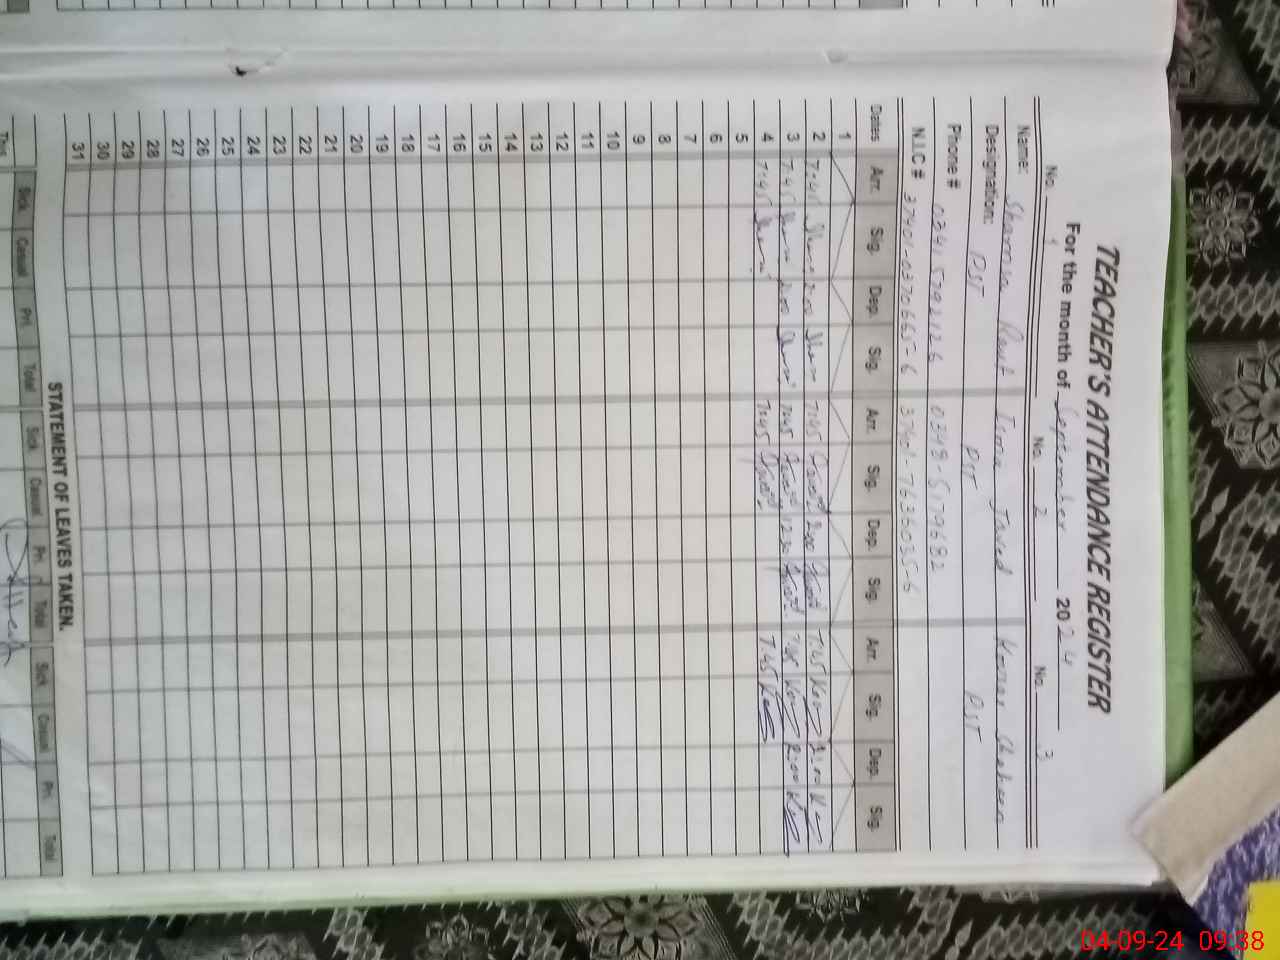 TEACHER'S ATTENDANCE REGISTER
For the month of September 2024
No. 1 No. 2 No. 3
Name: Shamsa Isma Javed Kousar Shaheen
Designation: PST PST PST
Phone # 0341 5792126 0348-5179682
N.I.C # 37401-0370665-6 37401-7636035-6
Dates Arr. Sig. Dep. Sig. Arr. Sig. Dep. Sig. Arr. Sig. Dep. Sig.
1
2 7:45 2:00 7:45 2:00 7:45 2:00
3 7:45 2:00 7:45 12:30 7:45 2:00
4 7:45 7:45 7:45
5
6
7
8
9
10
11
12
13
14
15
16
17
18
19
20
21
22
23
24
25
26
27
28
29
30
31
STATEMENT OF LEAVES TAKEN.
Sick Casual Pri. Total Sick Casual Pri. Total Sick Casual Pri. Total
This
04-09-24 09:38